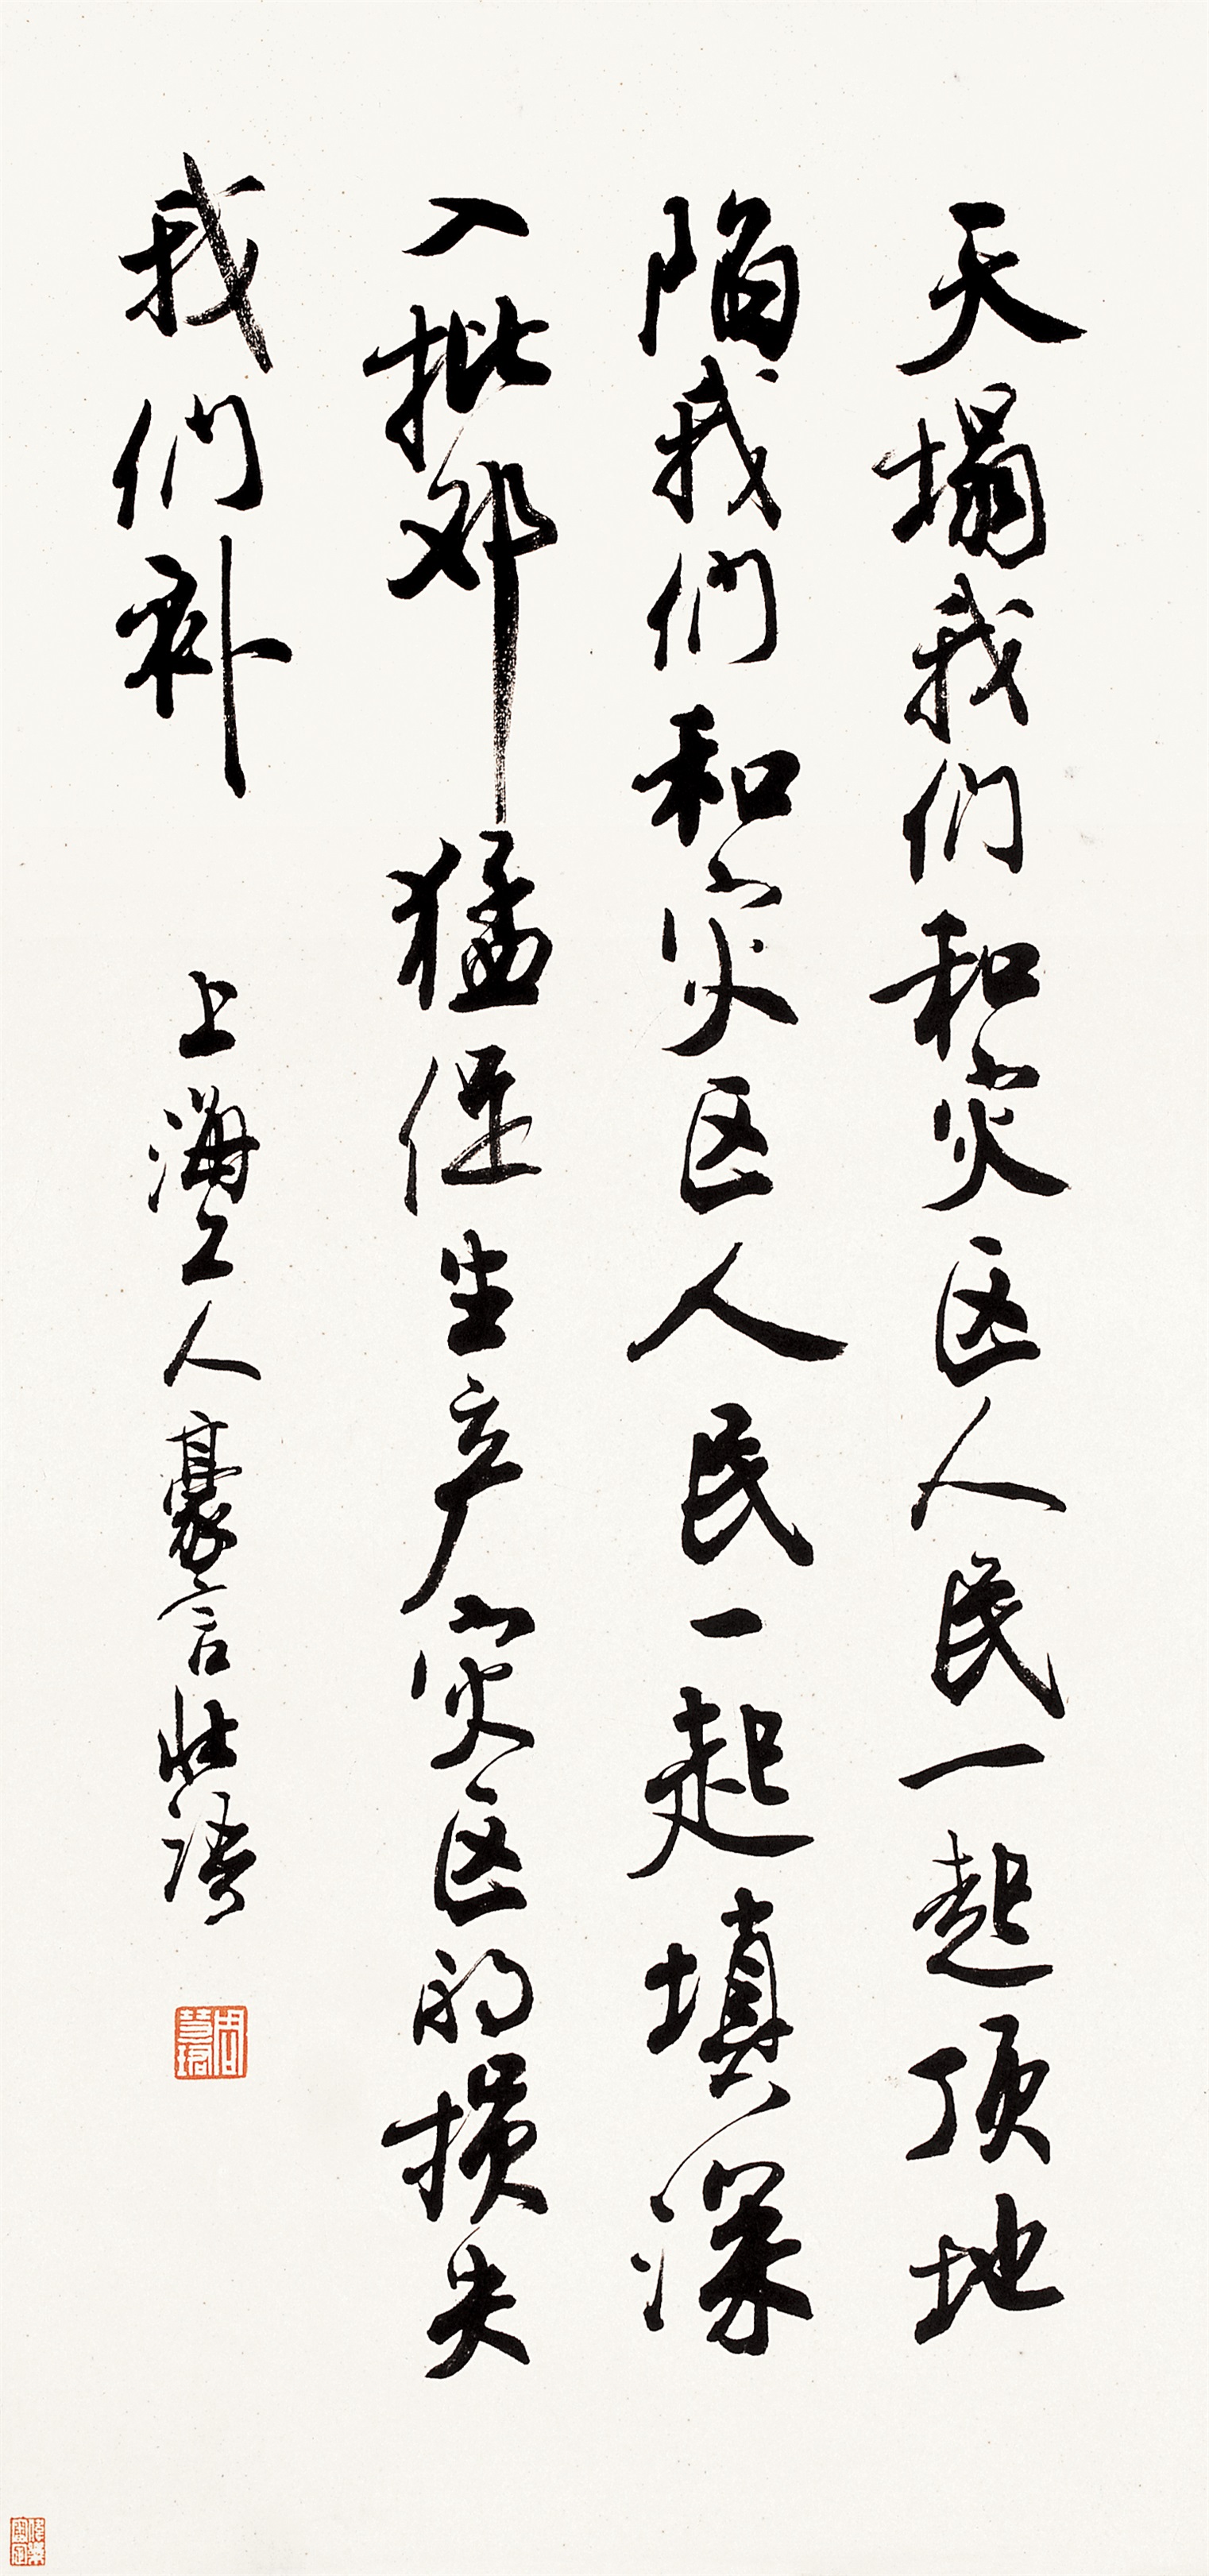 天塌我们和灾区人民一起顶地
陷我们和灾区人民一起填深
入批邓猛促生产灾区的损失
我们补
上海工人豪言壮语
周慧珺